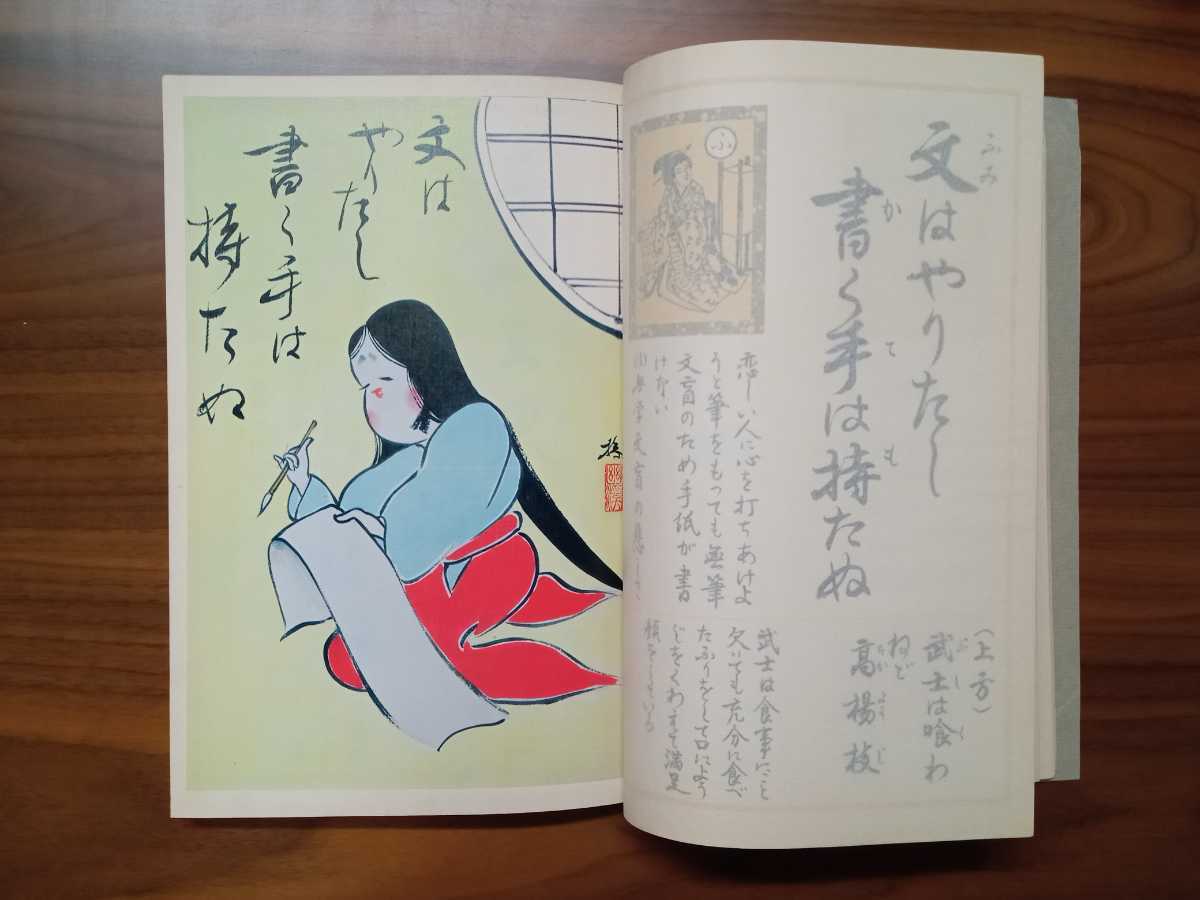 文は
やりたし
書く手は
持たぬ
ふ
文はやりたし
ふみ
書く手は持たぬ
か
て
も
恋しい人に心を打ちあけよ
うと筆をもっても無筆
文盲のため手紙が書
けない
(上方)
武士は喰わ
ぶし
く
ねど
高楊枝
たかようじ
武士は食事にこと
欠いても充分に食べ
たふりをして口によう
じをくわえて満足
顔をしている